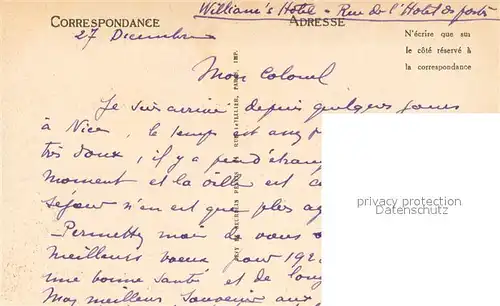 William's Hotel - Rue de l'Hotel des postes
CORRESPONDANCE
ADRESSE
27 Decembre
N'écrire que sur
le côté réservé à
la correspondance
Mon Colonel
Je suis arrivé depuis quelques jours
à Nice, le temps est
très doux, il y a peu d'étran
moment et la ville est
séjour n'en est que plus ag
Permettez moi de vous
meilleurs voeux pour 192
une bonne santé et de lon
Mes meilleurs souvenirs aux
privacy protection
Datenschutz